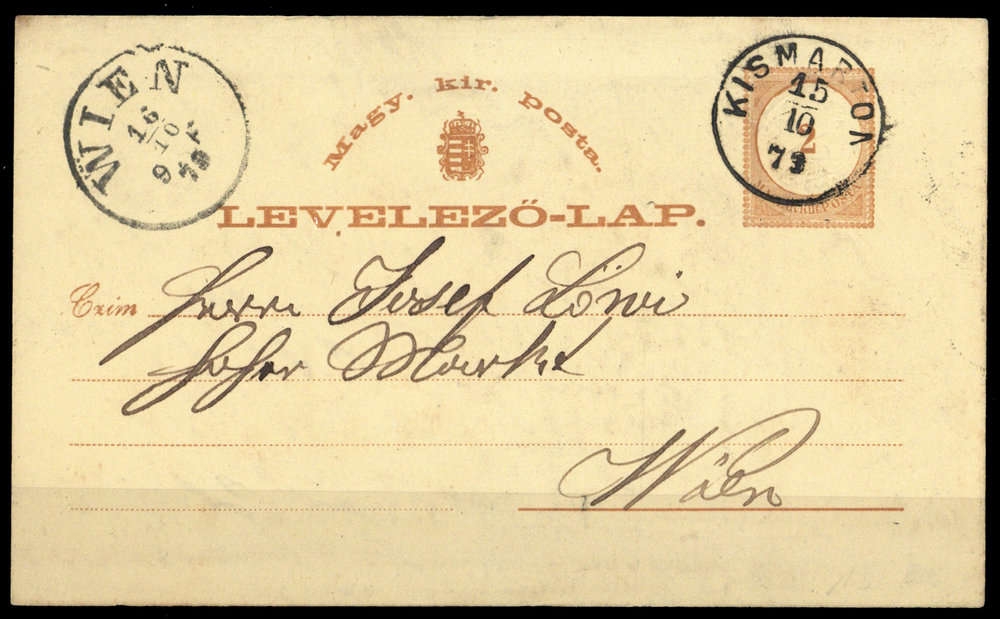 WIEN
16
10
9 F
79
Magy. kir. posta.
KISMARTON
15
10
79
2
LEVELEZŐ-LAP.
Czim Herrn Josef Löwi
Hoher Markt
Wien